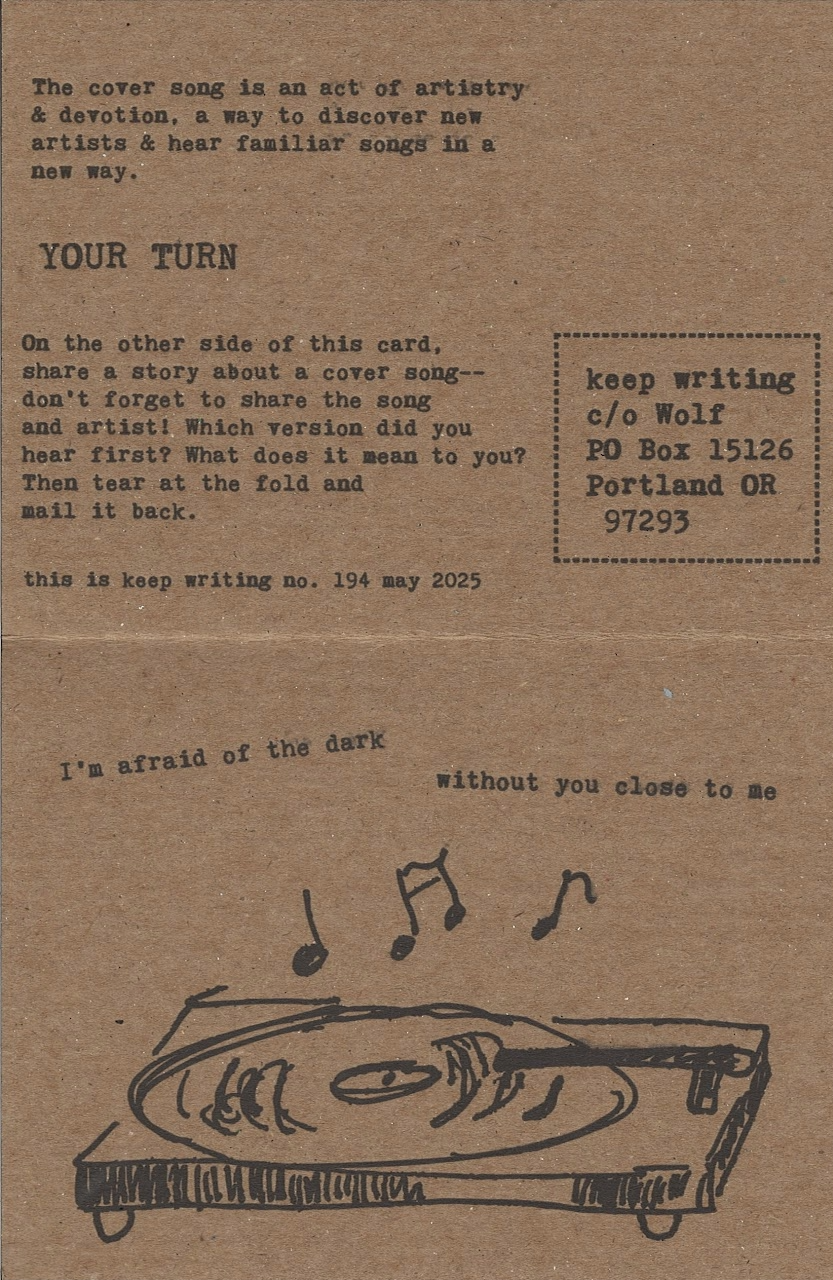 The cover song is an act of artistry
& devotion, a way to discover new
artists & hear familiar songs in a
new way.
YOUR TURN
On the other side of this card,
share a story about a cover song--
don't forget to share the song
and artist! Which version did you
hear first? What does it mean to you?
Then tear at the fold and
mail it back.
this is keep writing no. 194 may 2025
keep writing
c/o Wolf
PO Box 15126
Portland OR
97293
I'm afraid of the dark
without you close to me